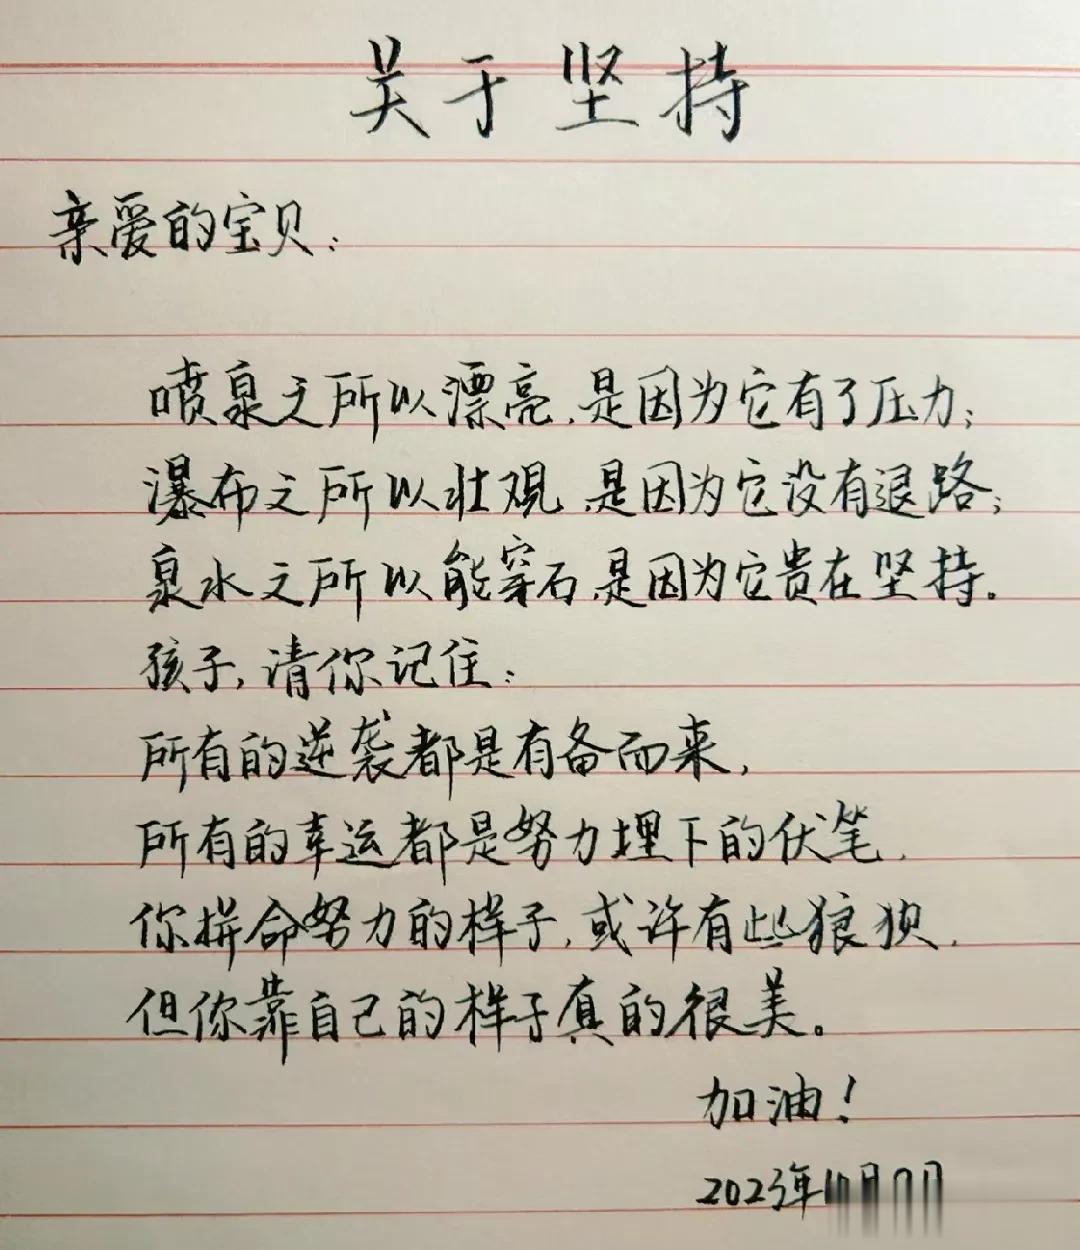 关于坚持
亲爱的宝贝:
喷泉之所以漂亮,是因为它有了压力;
瀑布之所以壮观,是因为它没有退路;
泉水之所以能穿石,是因为它贵在坚持.
孩子,请你记住:
所有的逆袭都是有备而来,
所有的幸运都是努力埋下的伏笔.
你拼命努力的样子,或许有些狼狈.
但你靠自己的样子真的很美。
加油!
2023年